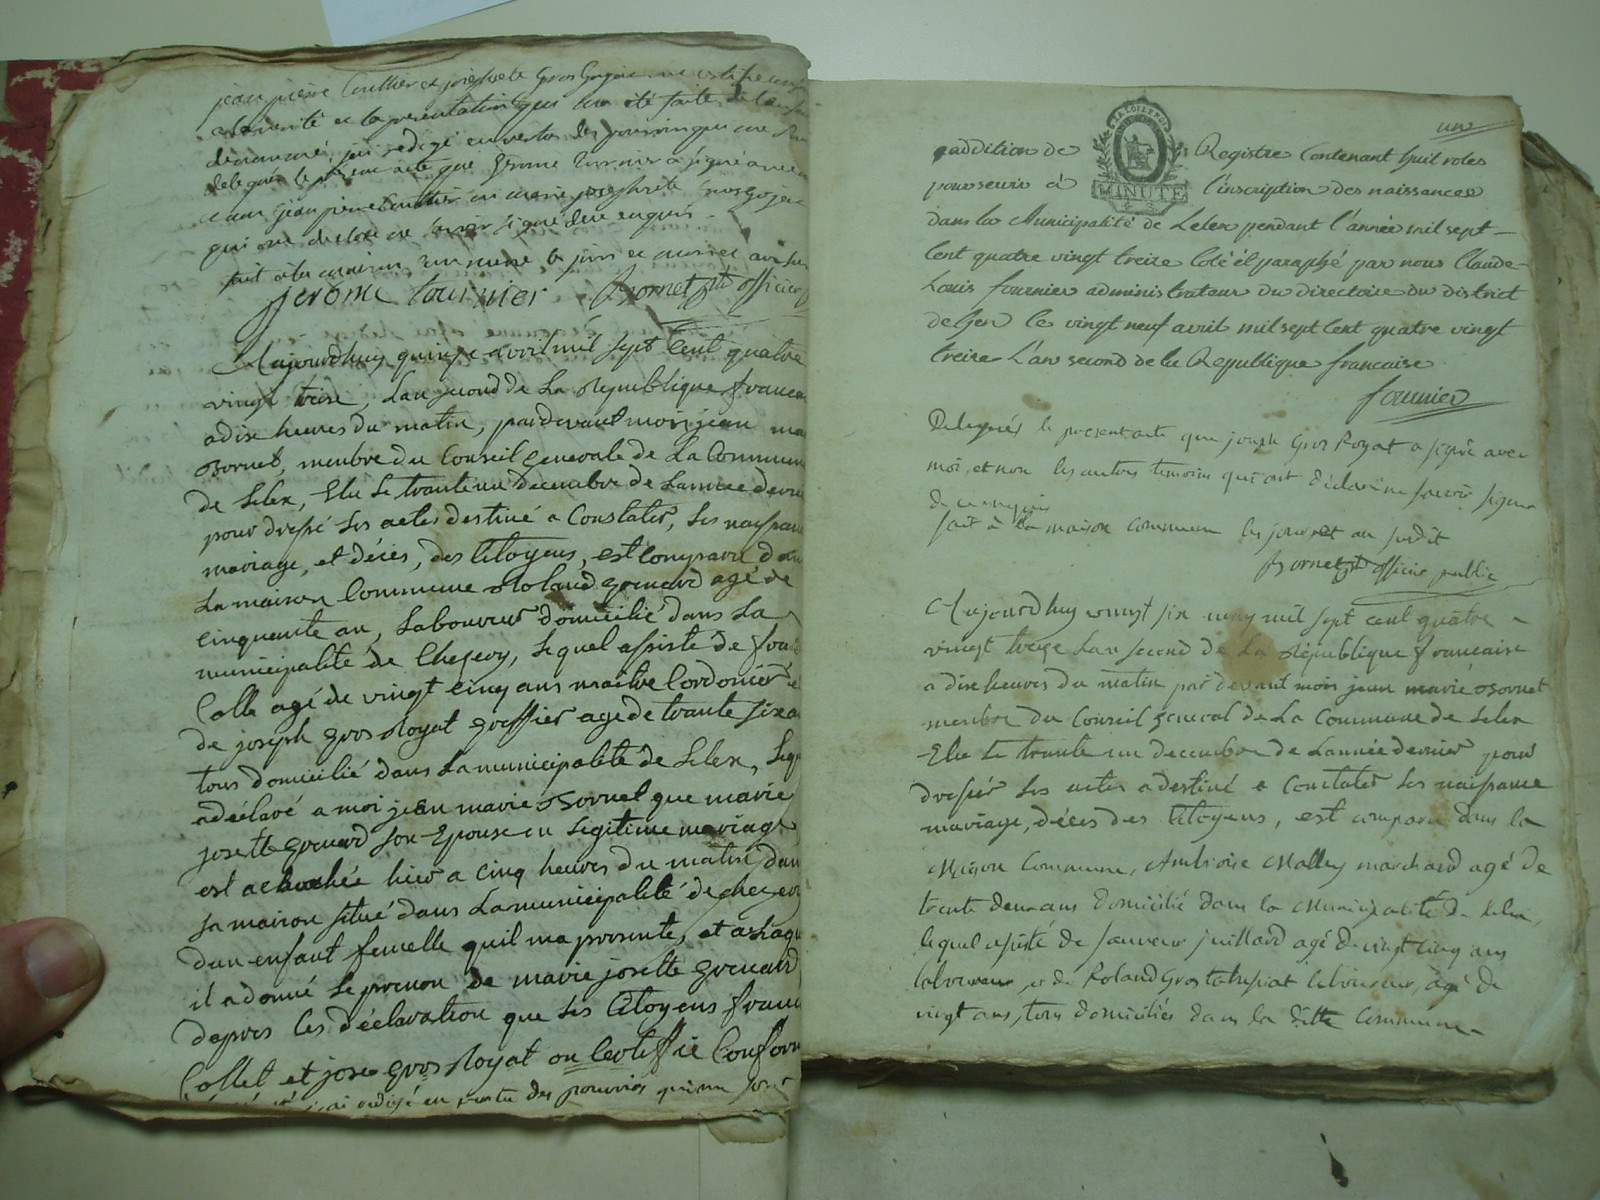 jean pierre Coutier et josephete Gros Gojat
a la verité et la presentation qui ma été faite de l'enfant
denommé, jai redigé en vertu des pouvoirs qui me sont
delegués le present acte que jerome tournier a signé avec
qui ont declaré ne savoir signé de ce enquis
fait a la maison commune le jour et mois et an susdit
jerome tournier Bornet officier
Aujourdhuy quinze avril mil sept Cent quatre
vingt treize, Lan second de La Republique francaise
a dix heures du matin, pardevant mois jean marie
Bornet, membre du Conseil generale de La Commune
de Lelex, Elu Le trante un decembre de Lannee dernier
pour dressé Les actes destiné a Constater, Les naissance
mariage, et décès, des Citoyens, est Comparu dans
La maison Commune Roland grenard agé de
cinquante an, Laboureur domicilié dans La
municipalité de Chezery, Lequel assisté de francois
Colle agé de vingt Cinq ans maitre Cordonier et
de joseph gros Royat greffier age de trante six an
tous domicilié dans La municipalité de Lelex, Lequel
a déclaré a moi jean marie Bornet que marie
josette grenard son Epouse en Legitime mariage
est acouchée hier a Cinq heures du matin dans
sa maison situé dans La municipalité de chezery
dun enfant femelle quil ma presenté, et a Laquelle
il a donné Le prenon de marie josette grenard
depres Les déclaration que Les Citoyens francois
Collet et jose gros Royat on Certiffié Conforme
jai redigé en vertu des pouvoirs qui me sont
une
addition de Registre Contenant huit roles
LA LOI LE ROI
MINUTE
pour servir à l'inscription des naissances
dans la Municipalité de Lelex pendant l'année mil sept
Cent quatre vingt treize Coté et paraphé par nous Claude
Louis fournier administrateur du directoire du district
de Gex le vingt neuf avril mil sept Cent quatre vingt
treize L'an second de la Republique francaise
fournier
Delegués le present acte que joseph Gros Royat a signé avec
moi, et non les autres temoins qui ont déclaré ne savoir signer
de ce enquis
fait à la maison commune les jour et an susdit
Bornet officier public
Aujourdhuy vingt six may mil sept cent quatre
vingt treize Lan second de La République francaise
a dix heures du matin par devant mois jean marie Bornet
membre du Conseil general de La Commune de Lelex
Elu Le trante un decembre de Lannée dernier pour
dressér Les actes a destiné a Constater Les naissance
mariage, décès des Citoyens, est comparu dans la
Maison Commune, Ambroise Malley marchand agé de
trente deux ans domicilié dans la Municipalité de Lelex,
lequel assisté de sauveur juillard agé de vingt cinq ans
laboureur, et de Roland Gros laboureur, agé de
vingt ans, tous domiciliés dans la ditte Commune